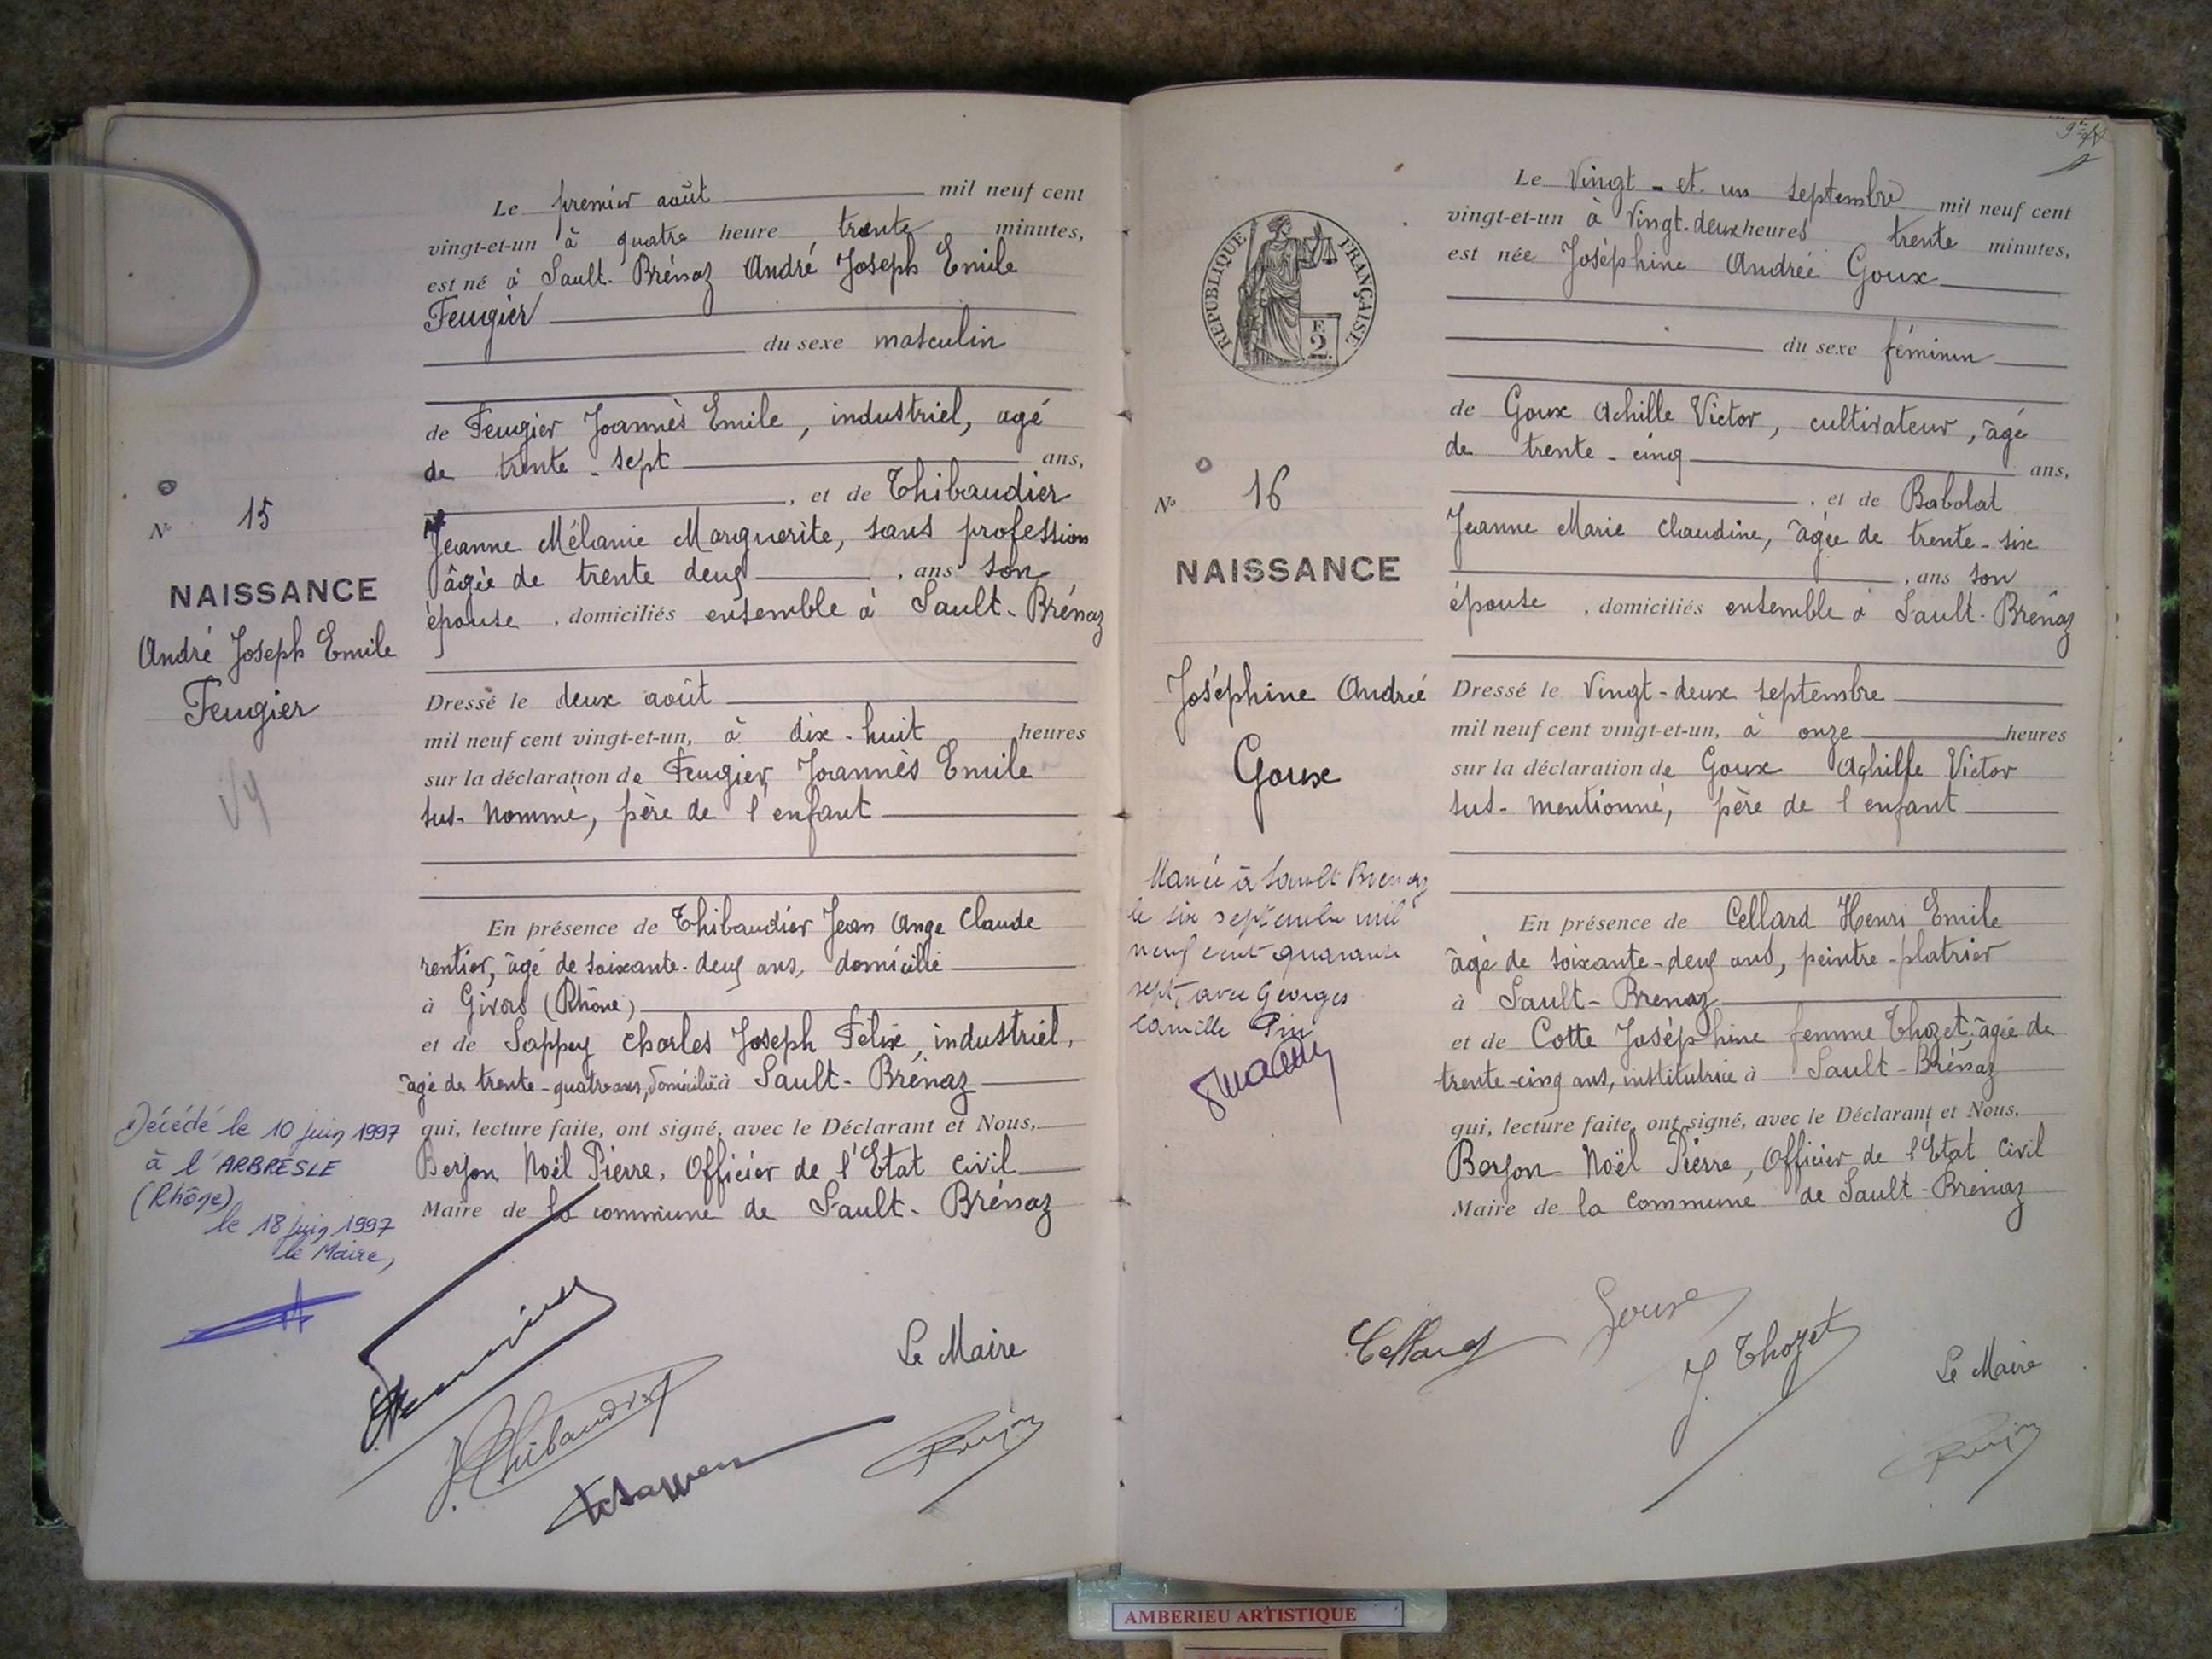 Le premier août mil neuf cent
vingt-et-un à quatre heure trente minutes,
est né à Sault-Brénaz André Joseph Emile
Feugier
du sexe masculin
de Feugier Joannès Emile, industriel, agé
de trente-sept ans,
, et de Thibaudier
Jeanne Mélanie Marguerite, sans profession
âgée de trente deux , ans son
épouse , domiciliés ensemble à Sault-Brénaz
N° 15
NAISSANCE
André Joseph Emile
Feugier
Dressé le deux août
mil neuf cent vingt-et-un, à dix-huit heures
sur la déclaration de Feugier Joannès Emile
sus-nommé, père de l'enfant
En présence de Thibaudier Jean Ange Claude
rentier, âgé de soixante-deux ans, domicilié
à Givors (Rhône)
et de Sappey Charles Joseph Félix, industriel,
âgé de trente-quatre ans, domicilié à Sault-Brénaz
qui, lecture faite, ont signé, avec le Déclarant et Nous,
Berjon Noël Pierre, Officier de l'Etat civil
Maire de la commune de Sault-Brénaz
Décédé le 10 juin 1997
à l'ARBRESLE
(Rhône)
le 18 juin 1997
le Maire,
J Thibaudier
Le Maire
REPUBLIQUE FRANÇAISE
F.
2.
Le Vingt-et-un septembre mil neuf cent
vingt-et-un à Vingt-deux heures trente minutes,
est née Joséphine Andrée Goux
du sexe féminin
de Goux Achille Victor, cultivateur, âgé
de trente-cinq ans,
, et de Babolat
Jeanne Marie Claudine, âgée de trente-six
, ans son
épouse , domiciliés ensemble à Sault-Brénaz
N° 16
NAISSANCE
Joséphine Andrée
Goux
Dressé le Vingt-deux septembre
mil neuf cent vingt-et-un, à onze heures
sur la déclaration de Goux Achille Victor
sus-mentionné, père de l'enfant
Mariée à Sault Brenaz
le six septembre mil
neuf cent quarante
sept, avec Georges
Camille Pin
En présence de Cellard Henri Emile
âgé de soixante-deux ans, peintre-platrier
à Sault-Brenaz
et de Cotte Joséphine femme Thozet, âgée de
trente-cinq ans, institutrice à Sault-Brénaz
qui, lecture faite, ont signé, avec le Déclarant et Nous,
Berjon Noël Pierre, Officier de l'Etat Civil
Maire de la Commune de Sault-Brénaz
Cellard
Goux
J. Thozet
Le Maire
AMBERIEU ARTISTIQUE